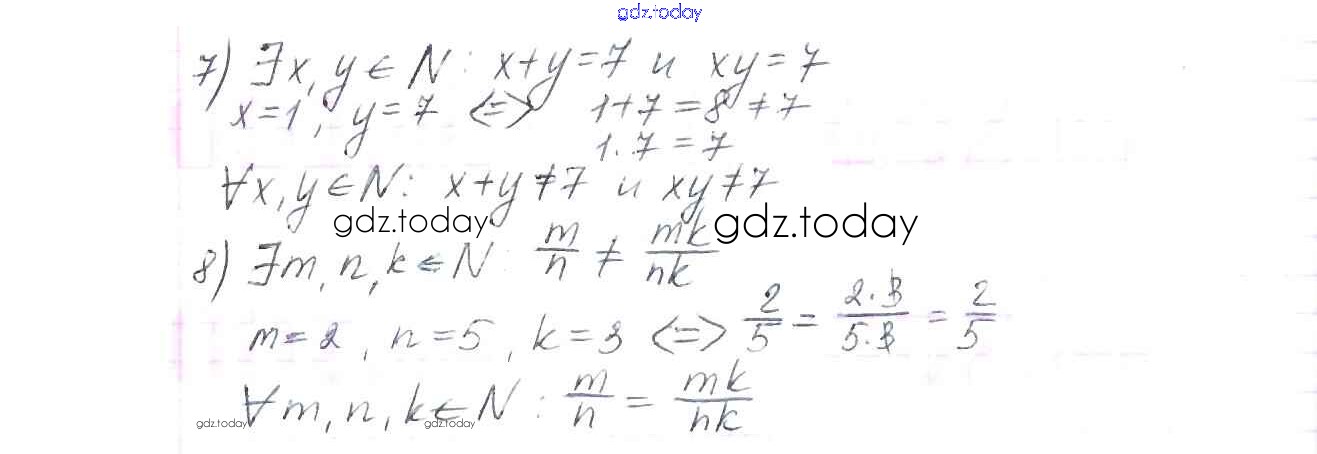 gdz.today
7) ∃x, y ∈ N : x+y=7 и xy=7
x=1, y=7 <=> 1+7=8≠7
1.7=7
∀x, y ∈ N: x+y≠7 и xy≠7
gdz.today gdz.today
8) ∃m, n, k ∈ N : m/n ≠ mk/nk
m=2, n=5, k=3 <=> 2/5 = 2·3/5·3 = 2/5
∀m, n, k ∈ N : m/n = mk/nk
gdz.today gdz.today